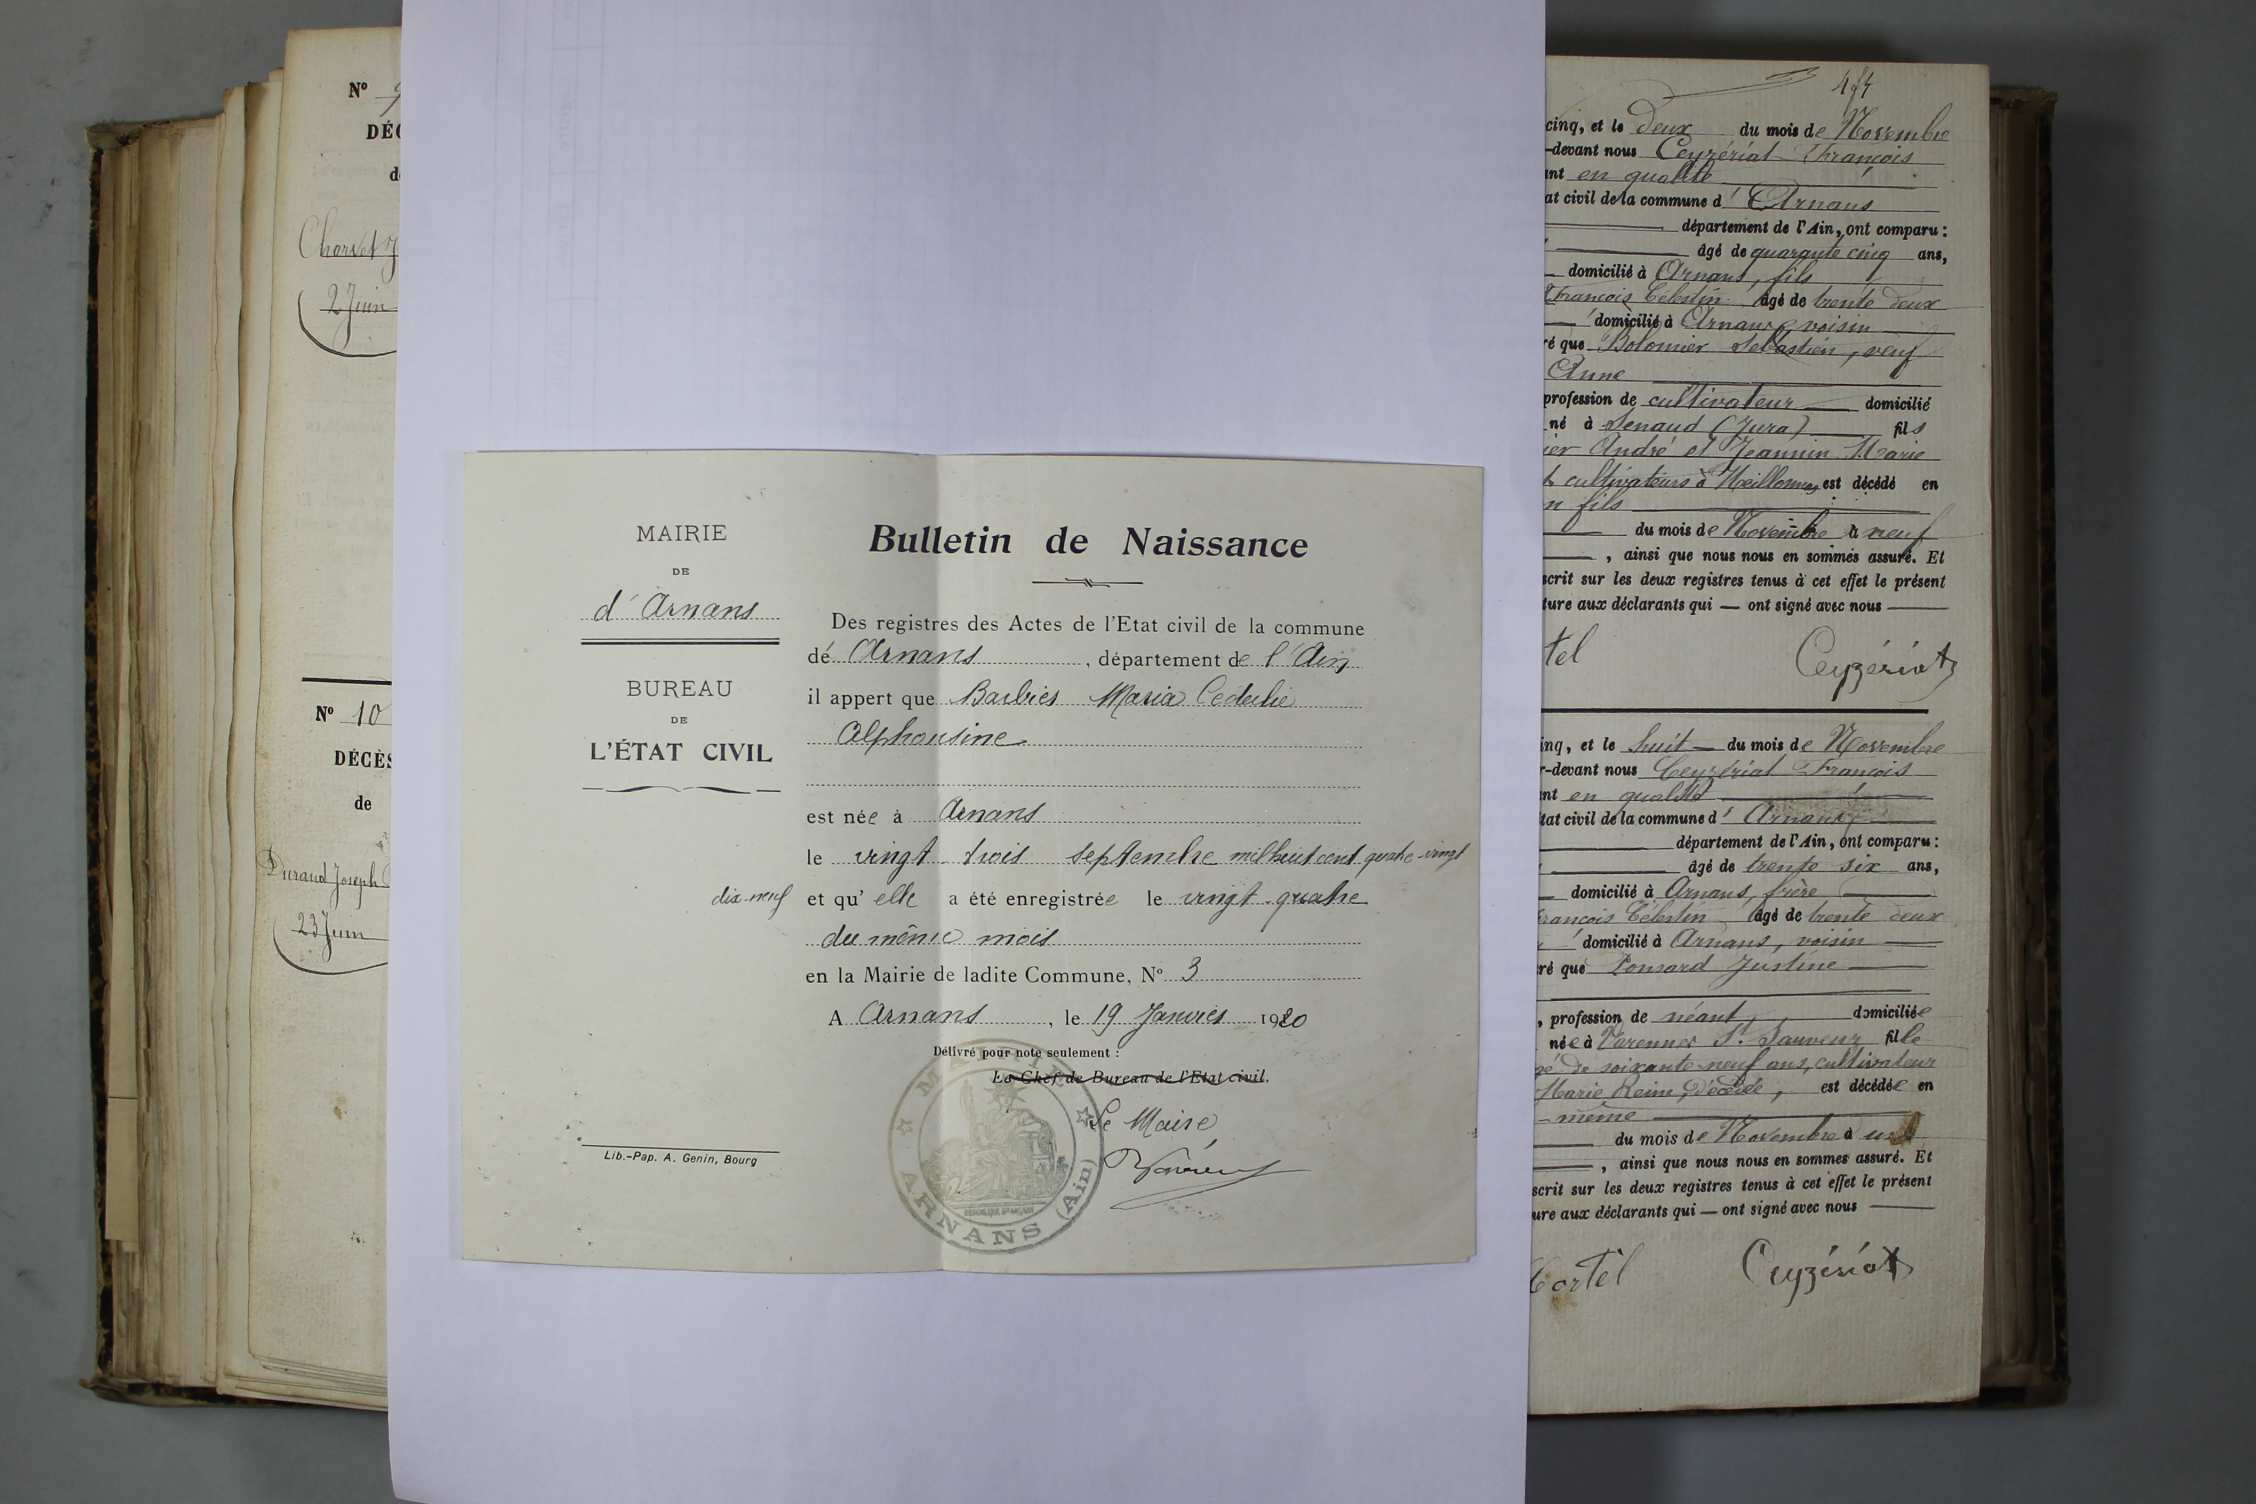 Nº
DÉC
d
2 Juin
Nº 10
DÉCÈS
de
Durand Joseph
23 Juin
MAIRIE
DE
d'Arnans
BUREAU
DE
L'ÉTAT CIVIL
dix-neuf
Lib.-Pap. A. Genin, Bourg
Bulletin de Naissance
Des registres des Actes de l'Etat civil de la commune
de Arnans, département de l'Ain
il appert que Barbier Maria
Alphonsine
est née à Arnans
le vingt trois septembre mil huit cent quatre-vingt
et qu'elle a été enregistrée le vingt-quatre
du même mois
en la Mairie de ladite Commune, Nº 3
A Arnans, le 19 Janvier 1920
Délivré pour note seulement :
Le Chef de Bureau de l'Etat civil.
Le Maire
MAIRIE
ARNANS (Ain)
cinq, et le deux du mois de Novembre
-devant nous Ceyzériat François
ant en qualité
at civil de la commune d'Arnans
département de l'Ain, ont comparu :
âgé de quarante cinq ans,
domicilié à Arnans, fils
François Célestin âgé de trente deux
domicilié à Arnans, voisin
ré que Bolomier Sébastien, veuf
Anne
profession de cultivateur domicilié
né à Senaud (Jura) fils
ier André et Jeannin Marie
t cultivateurs à Meillonnas est décédé en
n fils
du mois de Novembre à neuf
, ainsi que nous nous en sommes assuré. Et
scrit sur les deux registres tenus à cet effet le présent
ture aux déclarants qui — ont signé avec nous
tel Ceyzériat
inq, et le huit du mois de Novembre
r-devant nous Ceyzériat François
ant en qualité
tat civil de la commune d'Arnans
département de l'Ain, ont comparu :
âgé de trente six ans,
domicilié à Arnans, frère
François Célestin âgé de trente deux
domicilié à Arnans, voisin
ré que Ponsard Justine
, profession de néant, domiciliée
née à Varennes St. Sauveur fille
gé de soixante-neuf ans, cultivateur
Marie Reine, décédée, est décédée en
-même
du mois de Novembre à une
, ainsi que nous nous en sommes assuré. Et
scrit sur les deux registres tenus à cet effet le présent
ure aux déclarants qui — ont signé avec nous
Cortel Ceyzériat